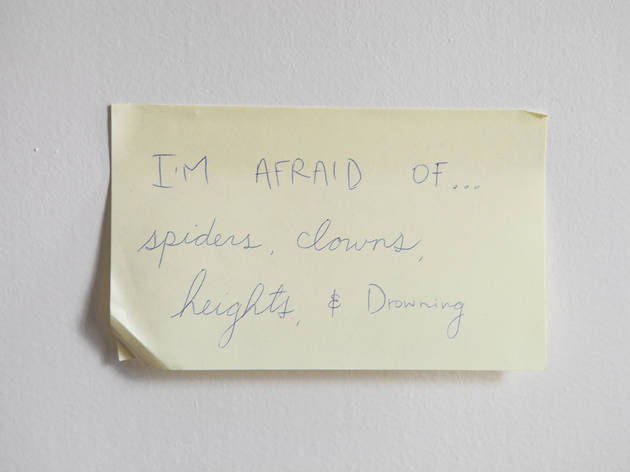 I'M AFRAID OF...
spiders, clowns,
heights, & Drowning